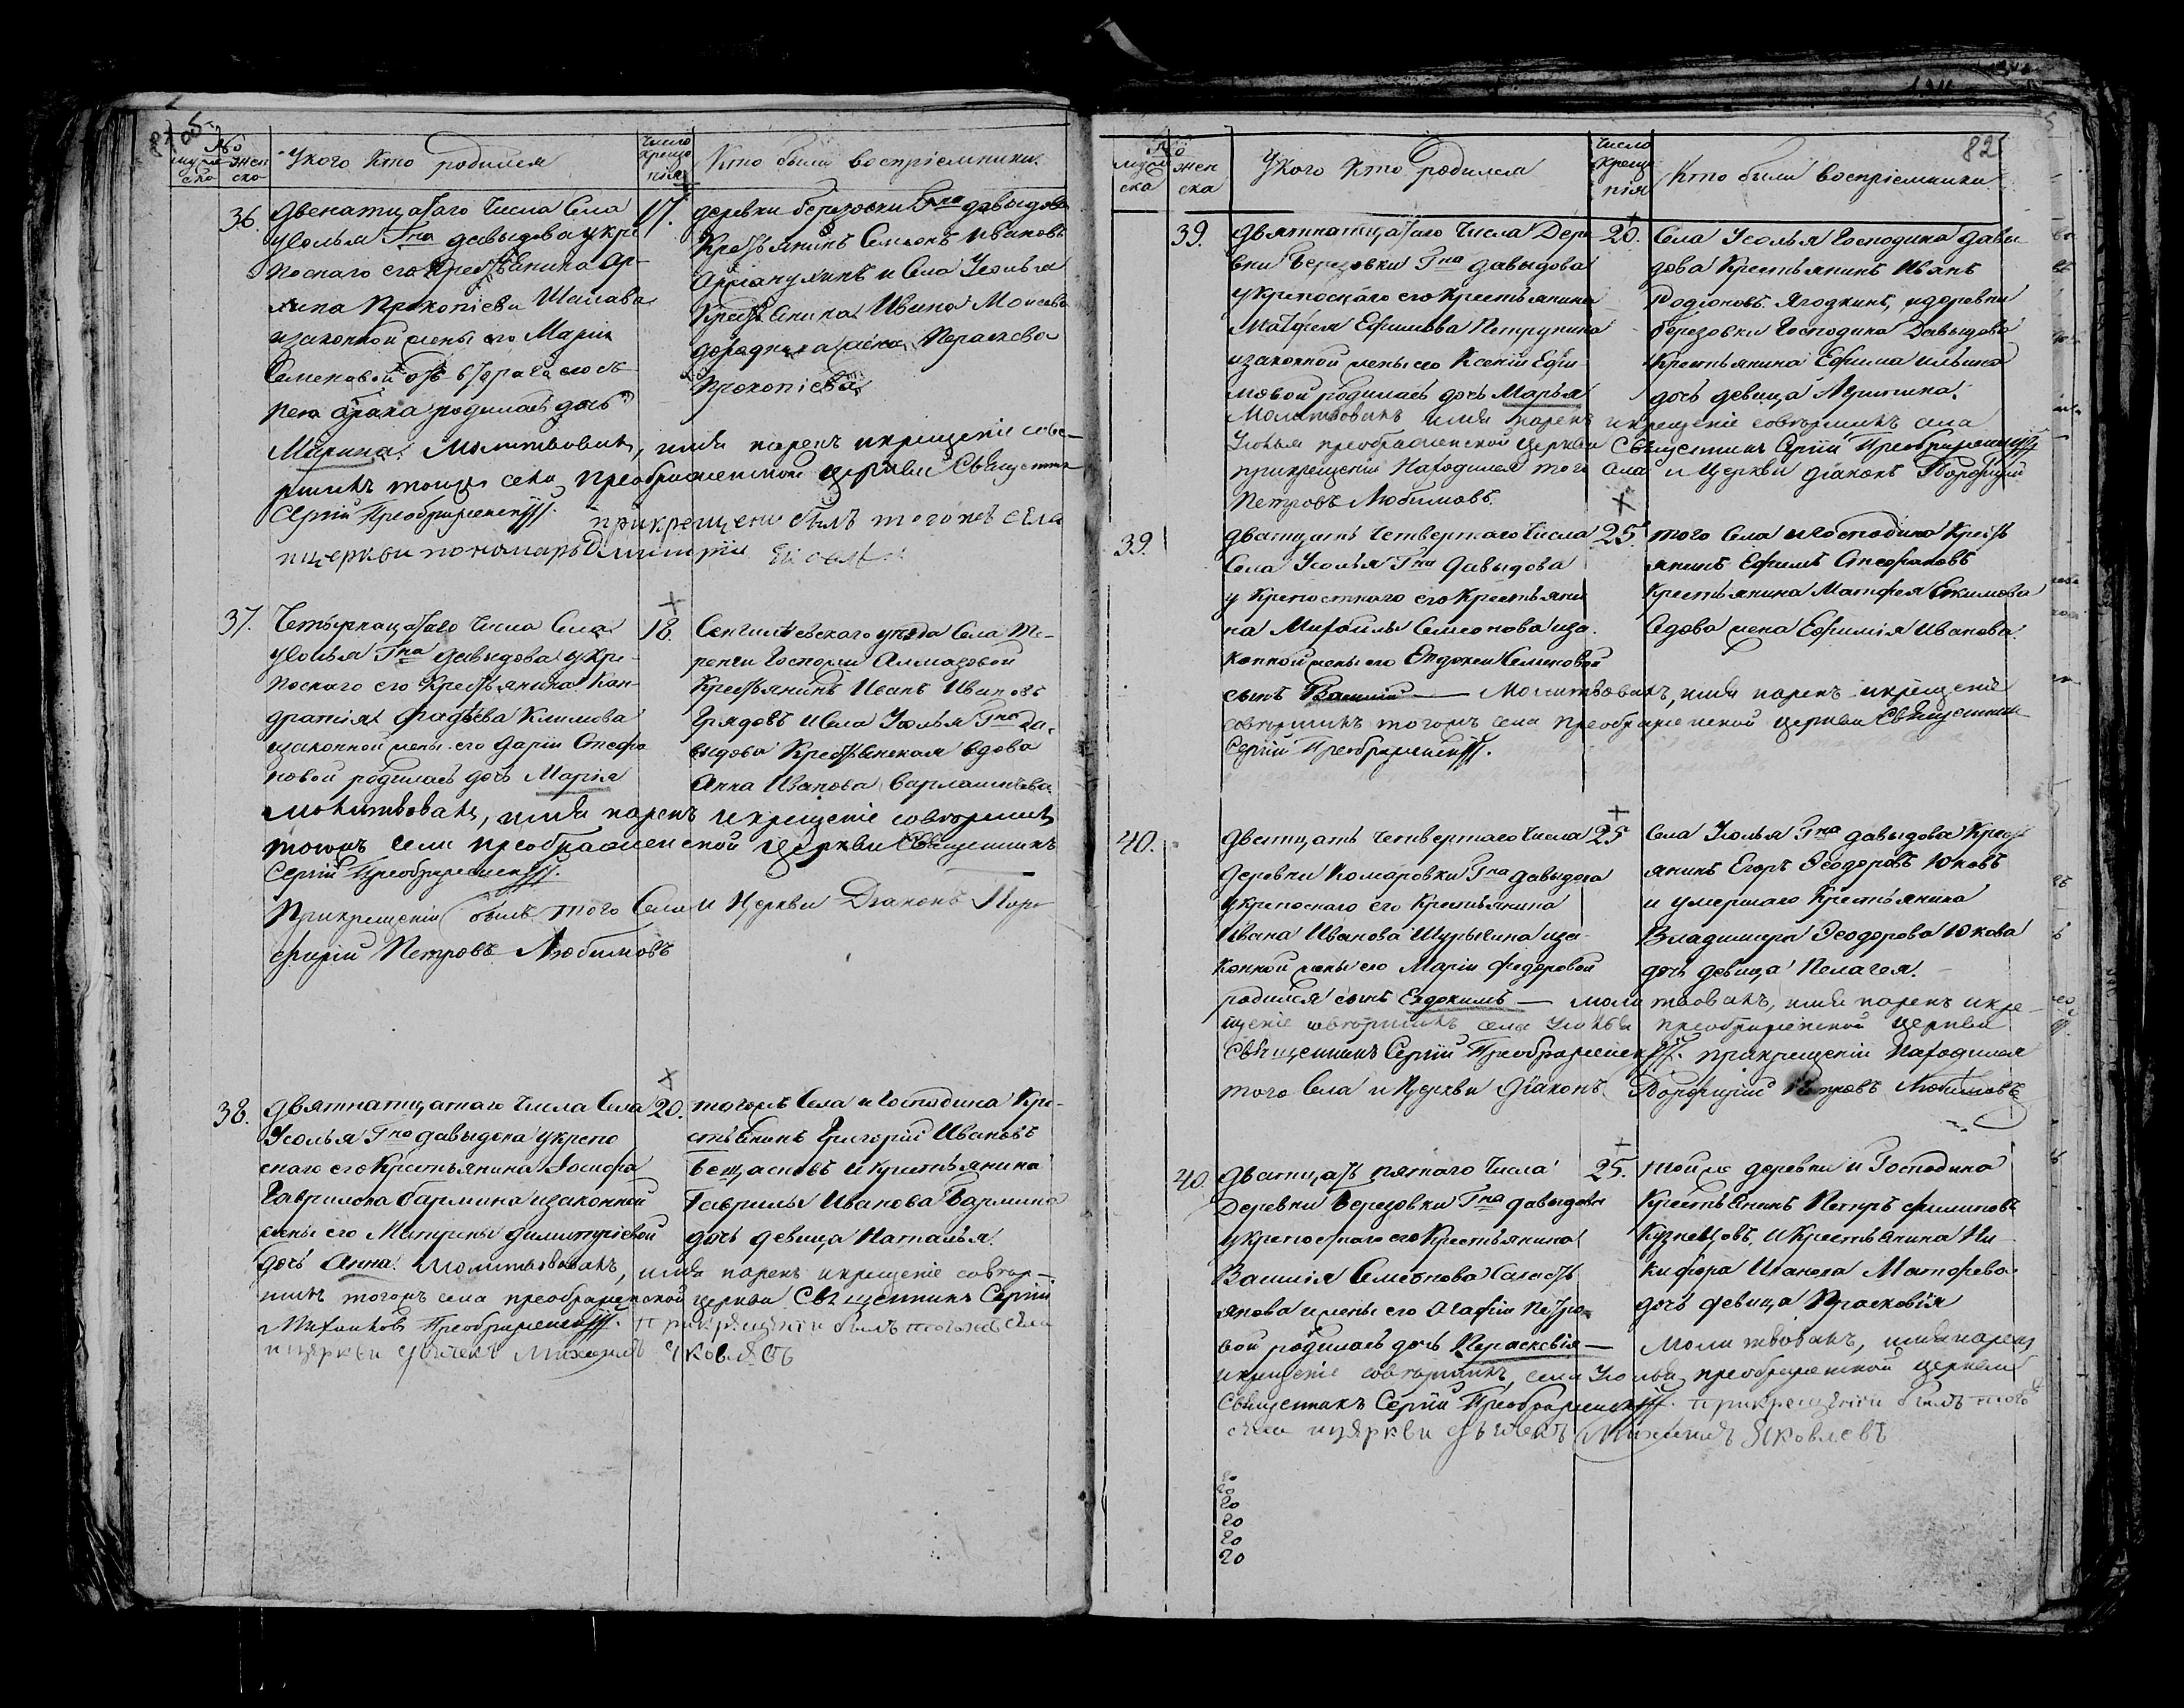 №
муже
ско
жен
ско
У кого кто родился
Число
креще
нія
Кто были воспріемники.
36.
Двенатцатаго Числа Села
Усолья Гна Давыдова у кре
поснаго его крестьянина
Прокопіева
и законной жены его Маріи
Семеновой отъ втораго
брака родилась дочь
Марина. Молитвовалъ, имя нарекъ и крещеніе сове-
ршилъ тогоже села Преображенской церкви Священникъ
Сергій Преображенскій. при крещеніи былъ того же села
и церкви пономарь Димитрій
17.
деревни березовки Гна давыдова
Крестьянинъ Семенъ Ивановъ
и Села Усолья
Крестьянина Ивана Моисеева
Параскева
Прокопіева
37.
Четырнацатаго Числа Села
Усолья Гна Давыдова у кре-
поснаго его Крестьянина Кон-
дратія Фадѣева Климова
и законной жены его Дарьи Стефа
новой родилась дочь Марія
Молитвовалъ, имя нарекъ и крещеніе совершилъ
тогожъ села Преображенской церкви Священникъ
Сергій Преображенскій.
При крещеніи былъ того Села и Церкви Діаконъ Пор-
фирій Петровъ Любимовъ
18.
Сенгилѣевскаго уезда Села Те-
реньги Госпожи Алмазовой
Крестьянинъ Иванъ Ивановъ
Грядовъ и Села Усолья Гна Да-
выдова Крестьянская вдова
Анна Иванова
38.
Двятнатцатаго Числа Села
Усолья Гна Давыдова у крепо
снаго его Крестьянина Іосифа
Гаврилова Бармина и законной
жены его Матрены Димитріевой
дочь Анна. Молитвовалъ, имя нарекъ и крещеніе совер-
шилъ тогожъ села Преображенской церкви Священникъ Сергій
Михайловъ Преображенскій. при крещеніи былъ тогожъ села
и церкви дьячекъ Михаилъ Яковлевъ
20.
тогожъ Села и Господина Кре-
стьянинъ Григорій Ивановъ
и крестьянина
Гаврилы Иванова Бармина
дочь девица Наталья.
82
№
муже
ска
жен
ска
У кого кто родился
Число
Креще
нія
Кто были воспріемники
39.
Двятнатцатаго Числа Дере
вни Березовки Гна Давыдова
у крепоснаго его Крестьянина
Матфея Ефимова Петрунина
и законной жены его Ксеніи Ефи-
мовой родилась дочь Марья
Молитвовалъ имя нарекъ и крещеніе совершилъ села
Усолья преображенской церкви Священникъ Сергій Преображенскій
при крещеніи Находился того Села и Церкви Діаконъ Порфирій
Петровъ Любимовъ.
20.
Села Усолья Господина Давы-
дова Крестьянинъ Иванъ
Родіоновъ Ягодкинъ, и деревни
березовки Господина Давыдова
Крестьянина Ефима Ильина
дочь девица
39.
Дватцать Четвертаго Числа
Села Усолья Гна Давыдова
у Крепостнаго его Крестьяни
на Михайлы Семенова и за-
конной жены его Евдокеи Семеновой
сынъ Василій — Молитвовалъ, имя нарекъ и крещеніе
совершилъ тогожъ села Преображенской церкви Священникъ
Сергій Преображенскій.
25.
того Села и Господина Кресть
янинъ Ефимъ Стефановъ
Крестьянина Матфея Екимова
Седова жена Ефимія Иванова
40.
Дватцать Четвертаго Числа
Деревни Комаровки Гна Давыдова
у крепоснаго его Крестьянина
Ивана Иванова Шурыгина и за-
конной жены его Маріи Федоровой
родился сынъ Евдокимъ — молитвовалъ, имя нарекъ и кре-
щеніе совершилъ села Усолья Преображенской церкви
Священникъ Сергій Преображенскій. при крещеніи Находился
того Села и Церкви Діаконъ Порфирій Петровъ Любимовъ
25
Села Усолья Гна Давыдова Кресть
янинъ Егоръ Ѳеодоровъ Юковъ
и умершаго Крестьянина
Владимера Ѳеодорова Юкова
дочь девица Пелагея.
40.
Дватцать пятаго Числа
Деревни Березовки Гна Давыдова
у крепоснаго его Крестьянина
Василія Семенова
и жены его Агафіи Петро-
вой родилась дочь Параскевія — Молитвовалъ, имя нарекъ
и крещеніе совершилъ, села Усолья преображенской церкви
Священникъ Сергій Преображенскій. при крещеніи былъ того
села и церкви дьячекъ Михаилъ Яковлевъ
25.
той же деревни и Господина
Крестьянинъ Петръ Филиповъ
Кузнецовъ, и Крестьянина Ни-
кифора Иванова Матфева
дочь девица Прасковія
20
20
20
20
20
20